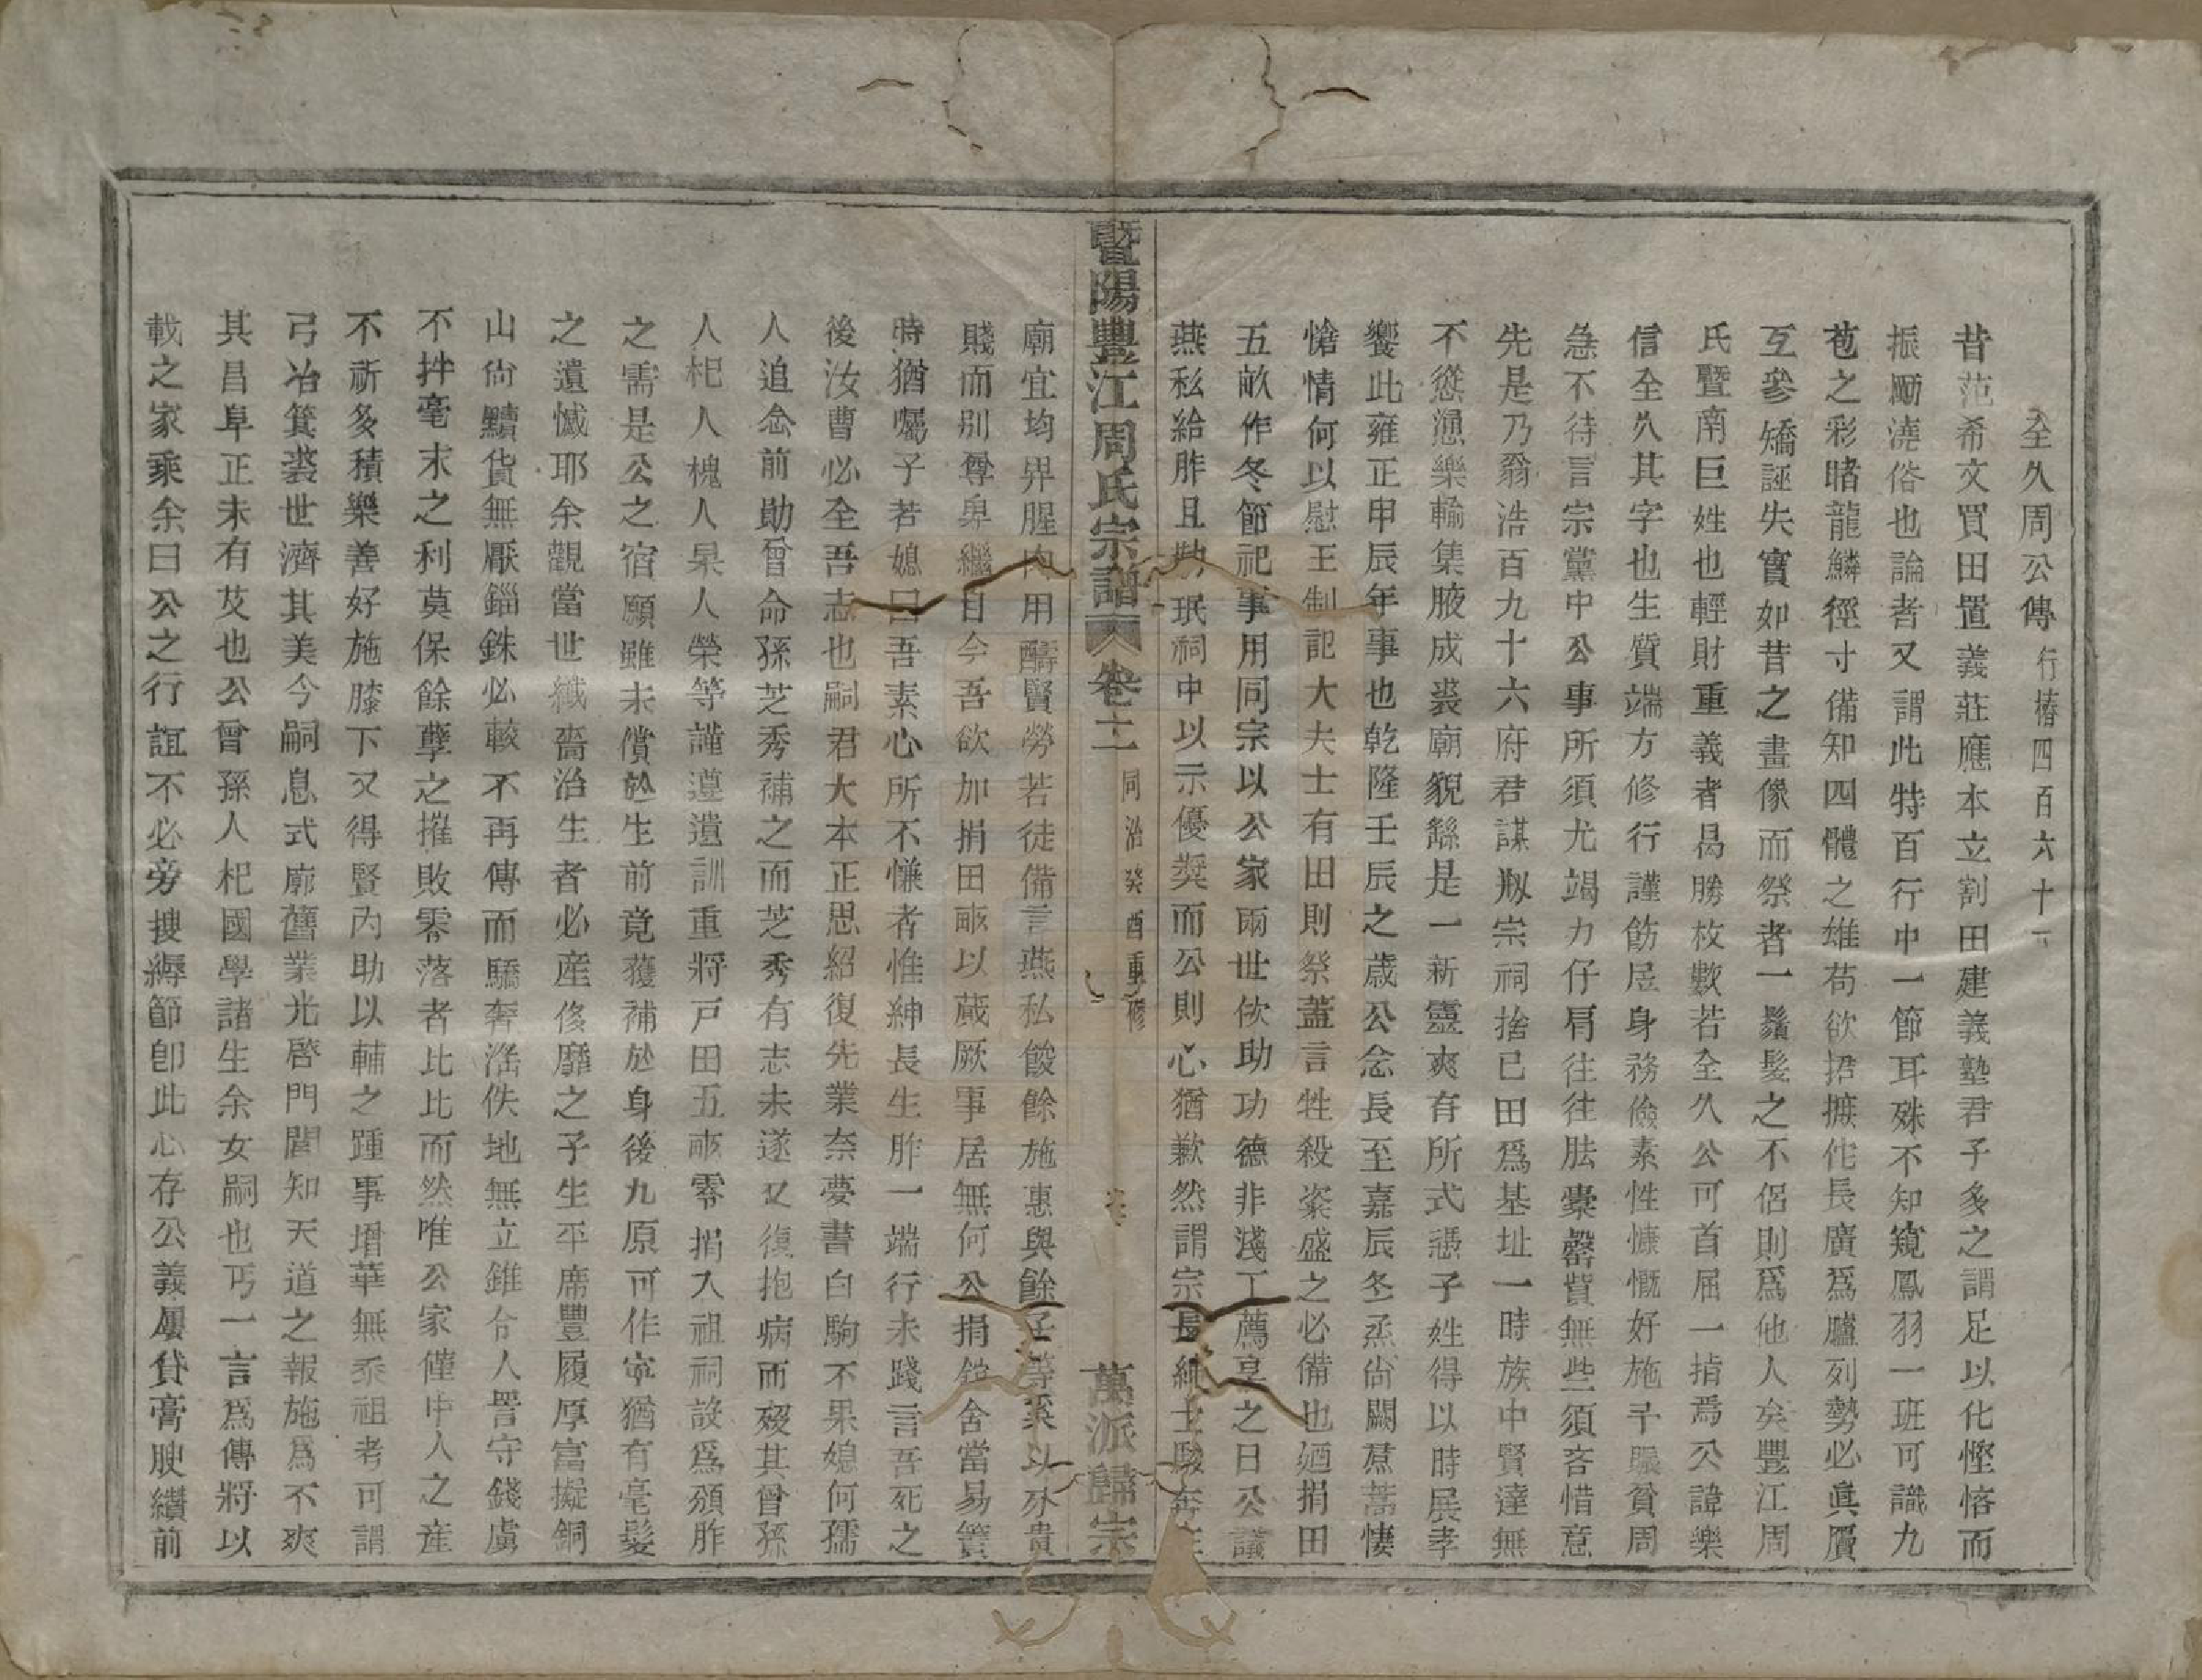 全久周公傳 行椿四百六十一
昔范希文買田置義莊應本立割田建義塾君子多之謂足以化慳悋而
振勵澆俗也論者又謂此特百行中一節耳殊不知窺鳳羽一班可識九
苞之彩睹龍鱗徑寸備知四體之雄苟欲捃摭侂長廣爲臚列勢必眞贋
互參矯誣失實如昔之畫像而祭者一鬚髮之不侶則爲他人矣豐江周
氏暨南巨姓也輕財重義者曷勝枚數若全久公可首屈一指焉公諱樂
信全久其字也生質端方修行謹飭居身務儉素性慷慨好施予賑貧周
急不待言宗黨中公事所須尤竭力仔肩往往胠橐罄貲無些須吝惜意
先是乃翁浩百九十六府君謀刱宗祠捨已田爲基址一時族中賢達無
不慫慂樂輸集腋成裘廟貌繇是一新靈爽有所式憑子姓得以時展孝
饗此雍正甲辰年事也乾隆壬辰之歲公念長至嘉辰冬烝尙闕蒸蒿悽
愴情何以慰王制記大夫士有田則祭蓋言牲殺粢盛之必備也廼捐田
五畝作冬節祀事用同宗以公家兩世佽助功德非淺工薦享之日公議
燕私給胙且勒珉祠中以示優奬而公則心猶歉然謂宗長紳士駿奔在
暨陽豐江周氏宗譜 卷十二 同治癸酉重修 萬派歸宗
廟宜均畀腥肉用醻賢勞若徒備言燕私餕餘施惠與餘子等奚以別貴
賤而別尊卑繼自今吾欲加捐田畝以蕆厥事居無何公捐館舍當易簀
時猶囑子若媳曰吾素心所不慊者惟紳長生胙一端行未踐言吾死之
後汝曹必全吾志也嗣君大本正思紹復先業奈夢書白駒不果媳何孺
人追念前勛曾命孫芝秀補之而芝秀有志未遂又復抱病而歿其曾孫
人杞人槐人杲人榮等謹遵遺訓重將戸田五畝零捐入祖祠設爲頒胙
之需是公之宿願雖未償於生前竟獲補於身後九原可作寧猶有毫髮
之遺憾耶余觀當世纎嗇治生者必產侈靡之子生平席豐履厚富擬銅
山尙黷貨無厭錙銖必較不再傳而驕奢滛佚地無立錐合人詈守錢虜
不拌毫末之利莫保餘孽之摧敗零落者比比而然唯公家僅中人之產
不祈多積樂善好施膝下又得賢內助以輔之踵事增華無忝祖考可謂
弓冶箕裘世濟其美今嗣息式廓舊業光啓門閭知天道之報施爲不爽
其昌阜正未有艾也公曾孫人杞國學諸生余女嗣也丐一言爲傳將以
載之家乘余曰公之行誼不必旁搜縟節卽此心存公義屢貸膏腴纘前